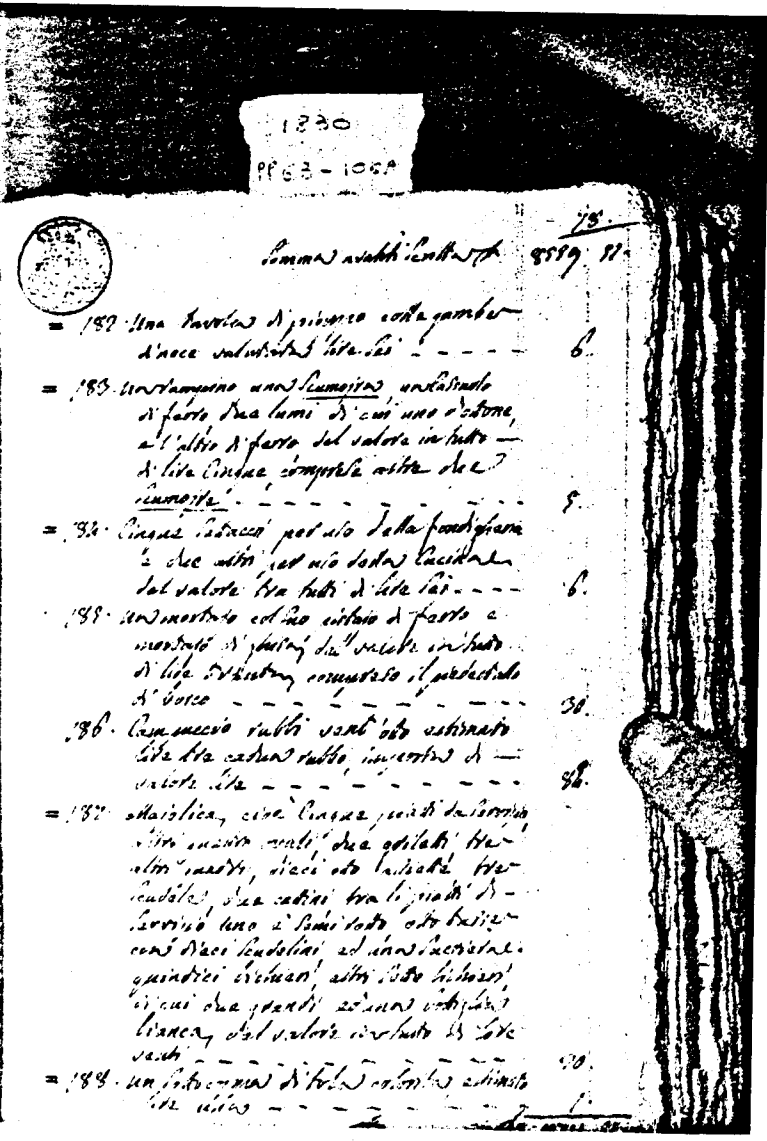 1830
PP 63 - 106A
78.
Somma avanti scritta
= 182. Una tavola di piemme colle gambe
di noce valutata lire sei - - - - 6.
= 183. Un rampino una scumoira
di ferro due lumi di cui uno d'ottone
e l'altro di ferro del valore in tutto
di lire cinque comprese altre due
scumoire - - - - - - 5.
= 184. Cinque setacci per uso della fondigheria
e due altri per uso della cucina
del valore tra tutti di lire sei - - - - 6.
185. Un mortaio col suo pistaio di ferro e
mortaio di del valore in tutto
di lire trenta compreso il piedestallo
di bosco - - - - - - 30.
186. rubbi vent'otto estimato
lire tre cadun rubbo in di
valore lire - - - - - - 84.
= 187. Maiolica, cioè cinque piatti da servizio
altri quatro ovali, due grilletti tre
altri dieci otto tre
scudele, due cadini tra li piatti di
servizio uno è semi rotto otto tasse
con dieci scudelini, ed una
quindici bichieri, altri sette bichieri,
di cui due grandi ed una
bianca, del valore in tutto di lire
venti - - - - - - 20.
= 188. Un di tela colorita estimato
lire una - - - - - - 1.